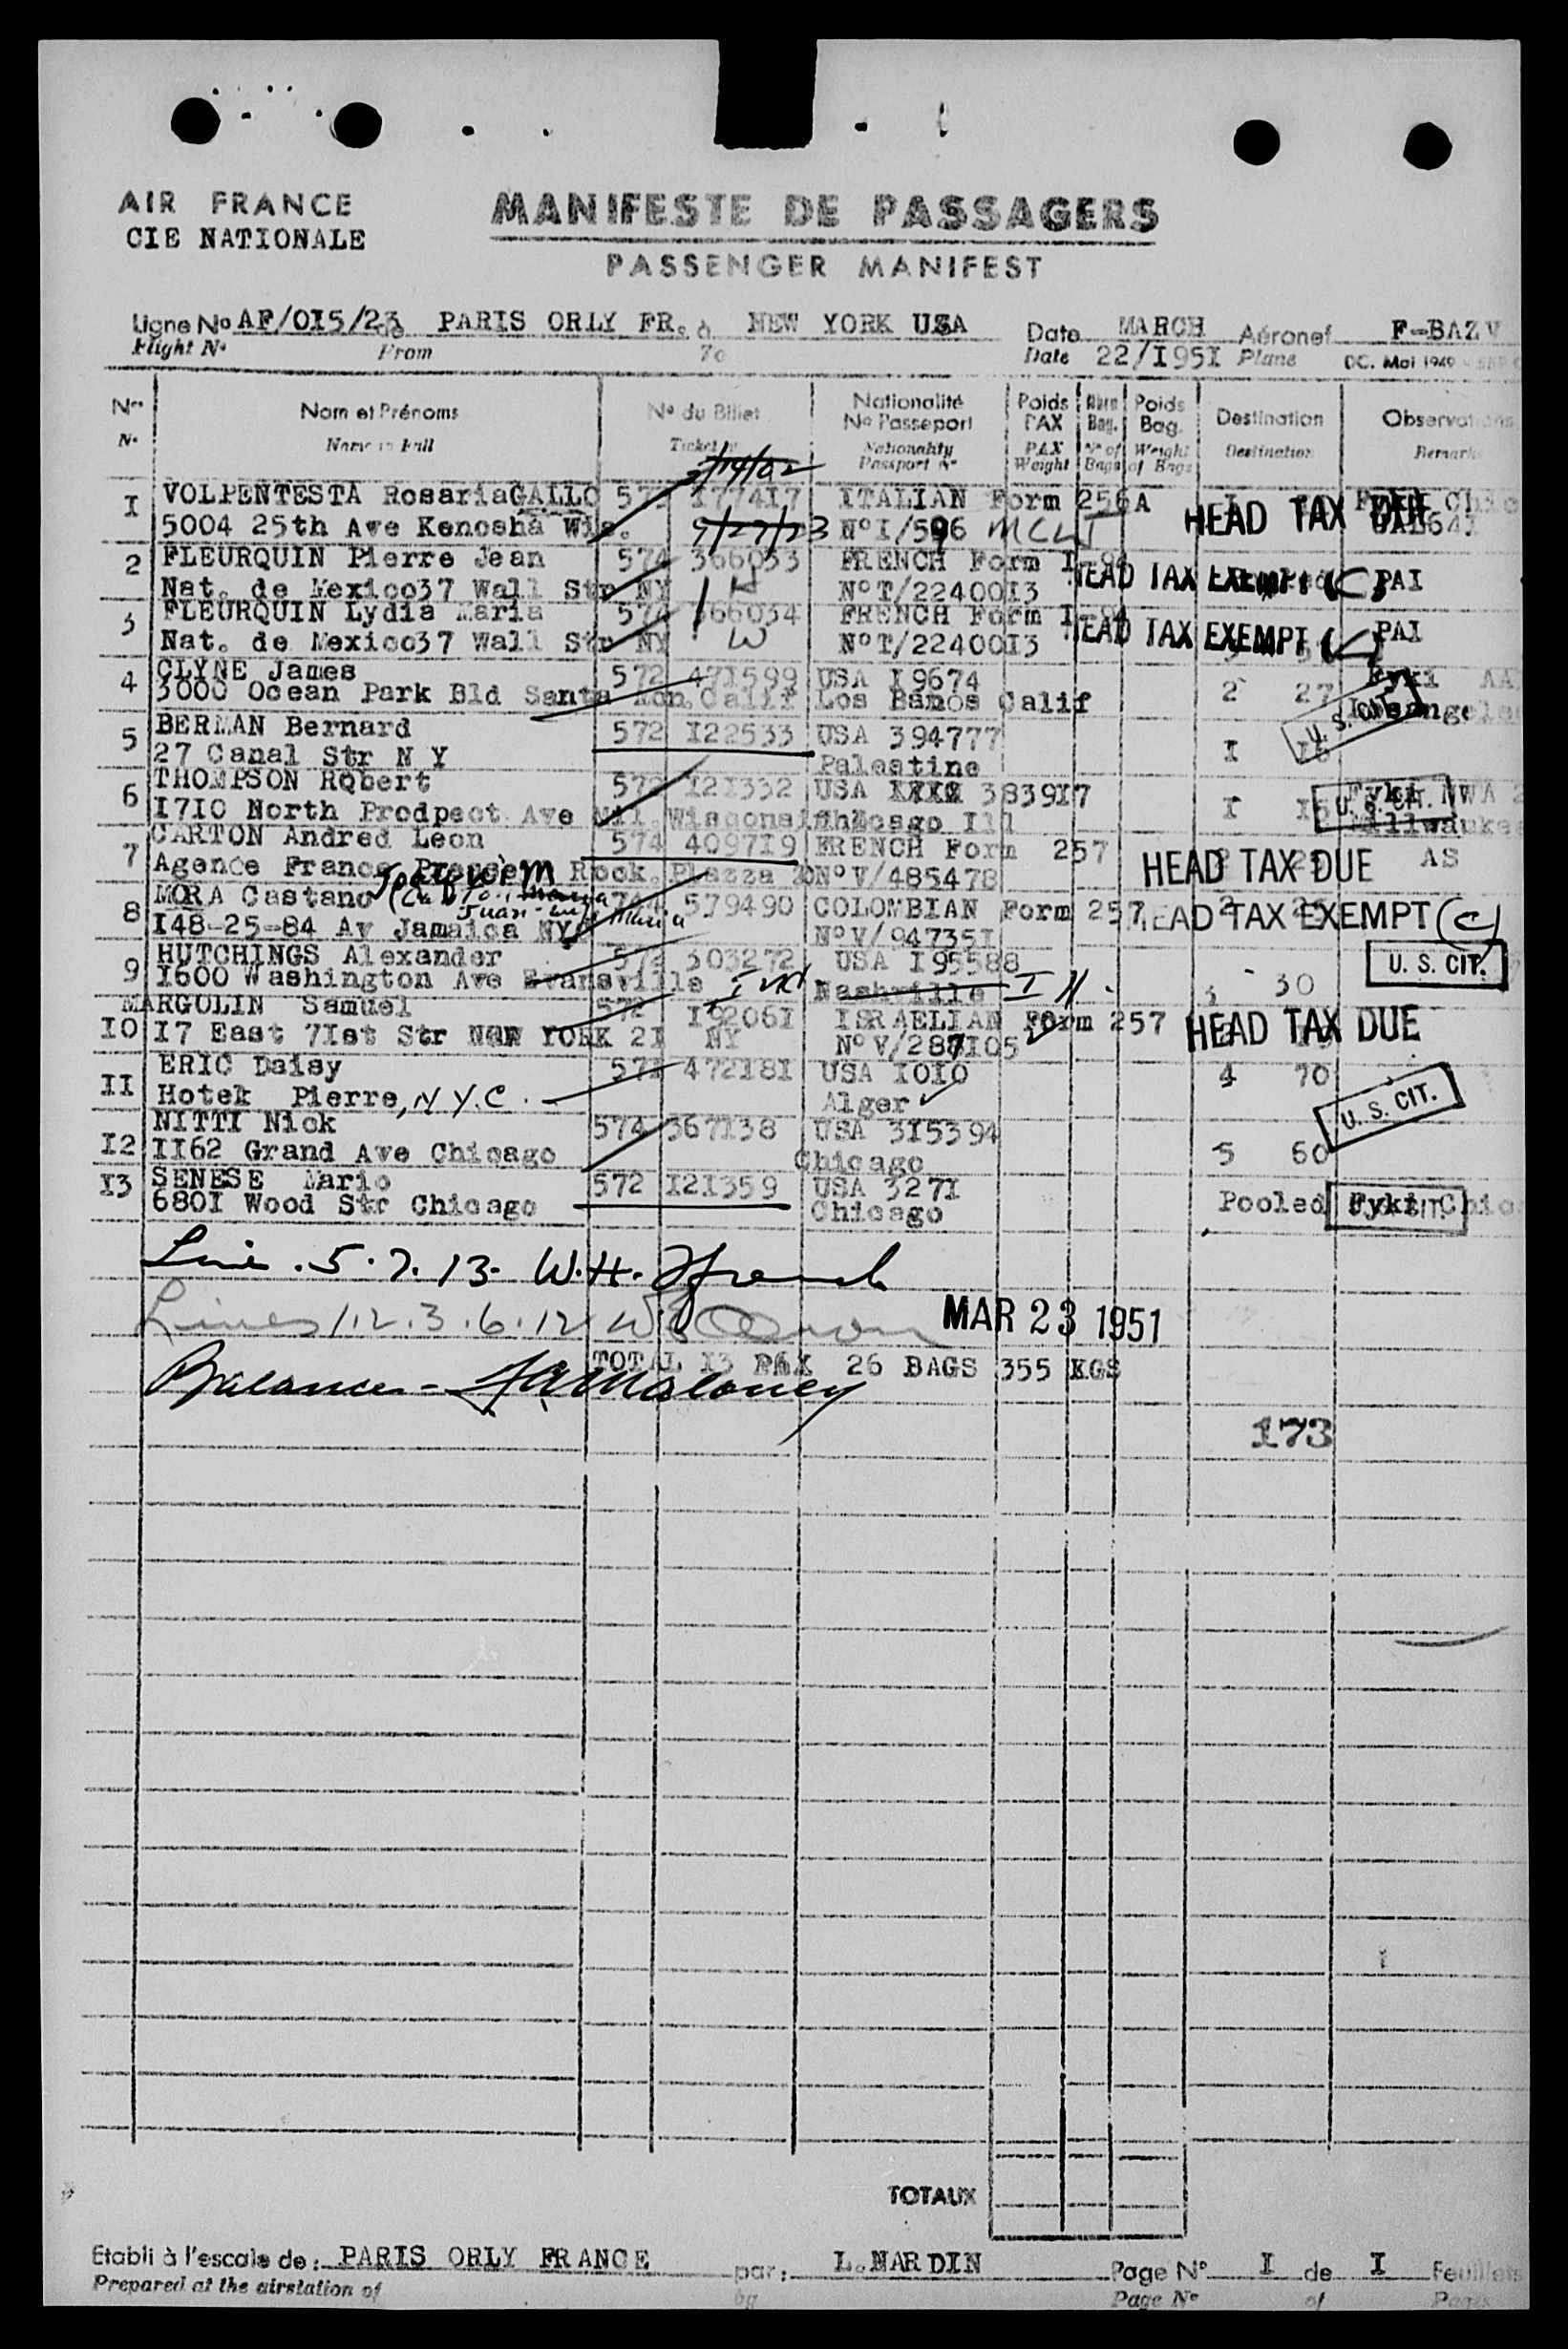 AIR FRANCE
CIE NATIONALE
MANIFESTE DE PASSAGERS
PASSENGER MANIFEST
Ligne No AF/0I5/23 de PARIS ORLY FR. à NEW YORK USA Date MARCH Aéronef F-BAZV
Flight No From To Date 22/I95I Plane OC. Mai 1949
Nos Nom et Prénoms No du Billet Nationalité No Passeport Poids PAX Nbre Bag. Poids Bag. Destination Observations
No Name in Full Ticket No Nationality Passport No PAX Weight No of Bags Weight of Bags Destination Remarks
2/14/02
I VOLPENTESTA Rosaria GALLO 572 177417 ITALIAN Form 256A HEAD TAX DUE
5004 25th Ave Kenosha Wis. 9/27/23 No I/596
2 FLEURQUIN Pierre Jean 574 366033 FRENCH Form I-94
Nat. de Mexico37 Wall Str NY H No T/22400I3 HEAD TAX EXEMPT (C) PAI
3 FLEURQUIN Lydia Maria 574 366034 FRENCH Form I-94
Nat. de Mexico37 Wall Str NY W No T/22400I3 HEAD TAX EXEMPT PAI
4 CLYNE James 572 471599 USA I9674 2 27 Fyki AA
3000 Ocean Park Bld Santa Mon. Calif Los Banos Calif U. S. CIT.
5 BERMAN Bernard 572 I22533 USA 394777 I
27 Canal Str N Y Palestine
6 THOMPSON Robert 572 I2I332 USA 3839I7 I Fyki NWA
I7I0 North Prodpect Ave Mil. Wisconsin Chicago Ill U. S. CIT. Millwaukee
7 CARTON Andred Leon 574 4097I9 FRENCH Form 257 HEAD TAX DUE AS
Agence France Presse Rock. Plazza No V/485478
8 MORA Castano 574 579490 COLOMBIAN Form 257 HEAD TAX EXEMPT (C)
Juan Maria
I48-25-84 Av Jamaica NY No V/94735I
9 HUTCHINGS Alexander 572 303272 USA I95588 U. S. CIT.
I600 Washington Ave Evansville Ind Nashville 3 30
MARGOLIN Samuel 572 I9206I ISRAELIAN Form 257 HEAD TAX DUE
I0 I7 East 7Ist Str NEW YORK 2I NY No V/287I05
ERIC Daisy 572 472I8I USA I0I0 4 70
II Hotek Pierre, N.Y.C. Alger U. S. CIT.
NITTI Nick 574 367I38 USA 3I5394
I2 II62 Grand Ave Chicago Chicago 5 60
I3 SENESE Mario 572 I2I359 USA 327I
680I Wood Str Chicago Chicago Pooled Fyki Chic
Line . 5. 7. 13. W.H. French
Lines 1.2.3.6.12
MAR 23 1951
TOTAL I3 PAX 26 BAGS 355 KGS
Balance - J A Maloney
173
TOTAUX
Etabli à l'escale de: PARIS ORLY FRANCE par: L. NARDIN Page No I de I Feuillets
Prepared at the airstation of by Page No of Pages